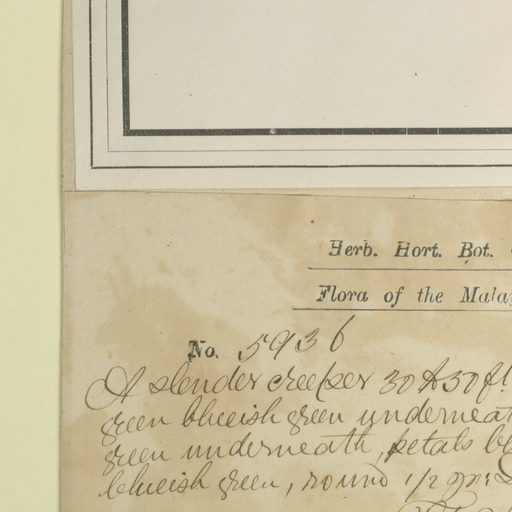 Herb. Hort. Bot.
Flora of the Malay
No. 5936
A slender creeper 30 to 50 ft
green blueish green underneat
green underneath, petals bl
blueish green, round 1/2 in: